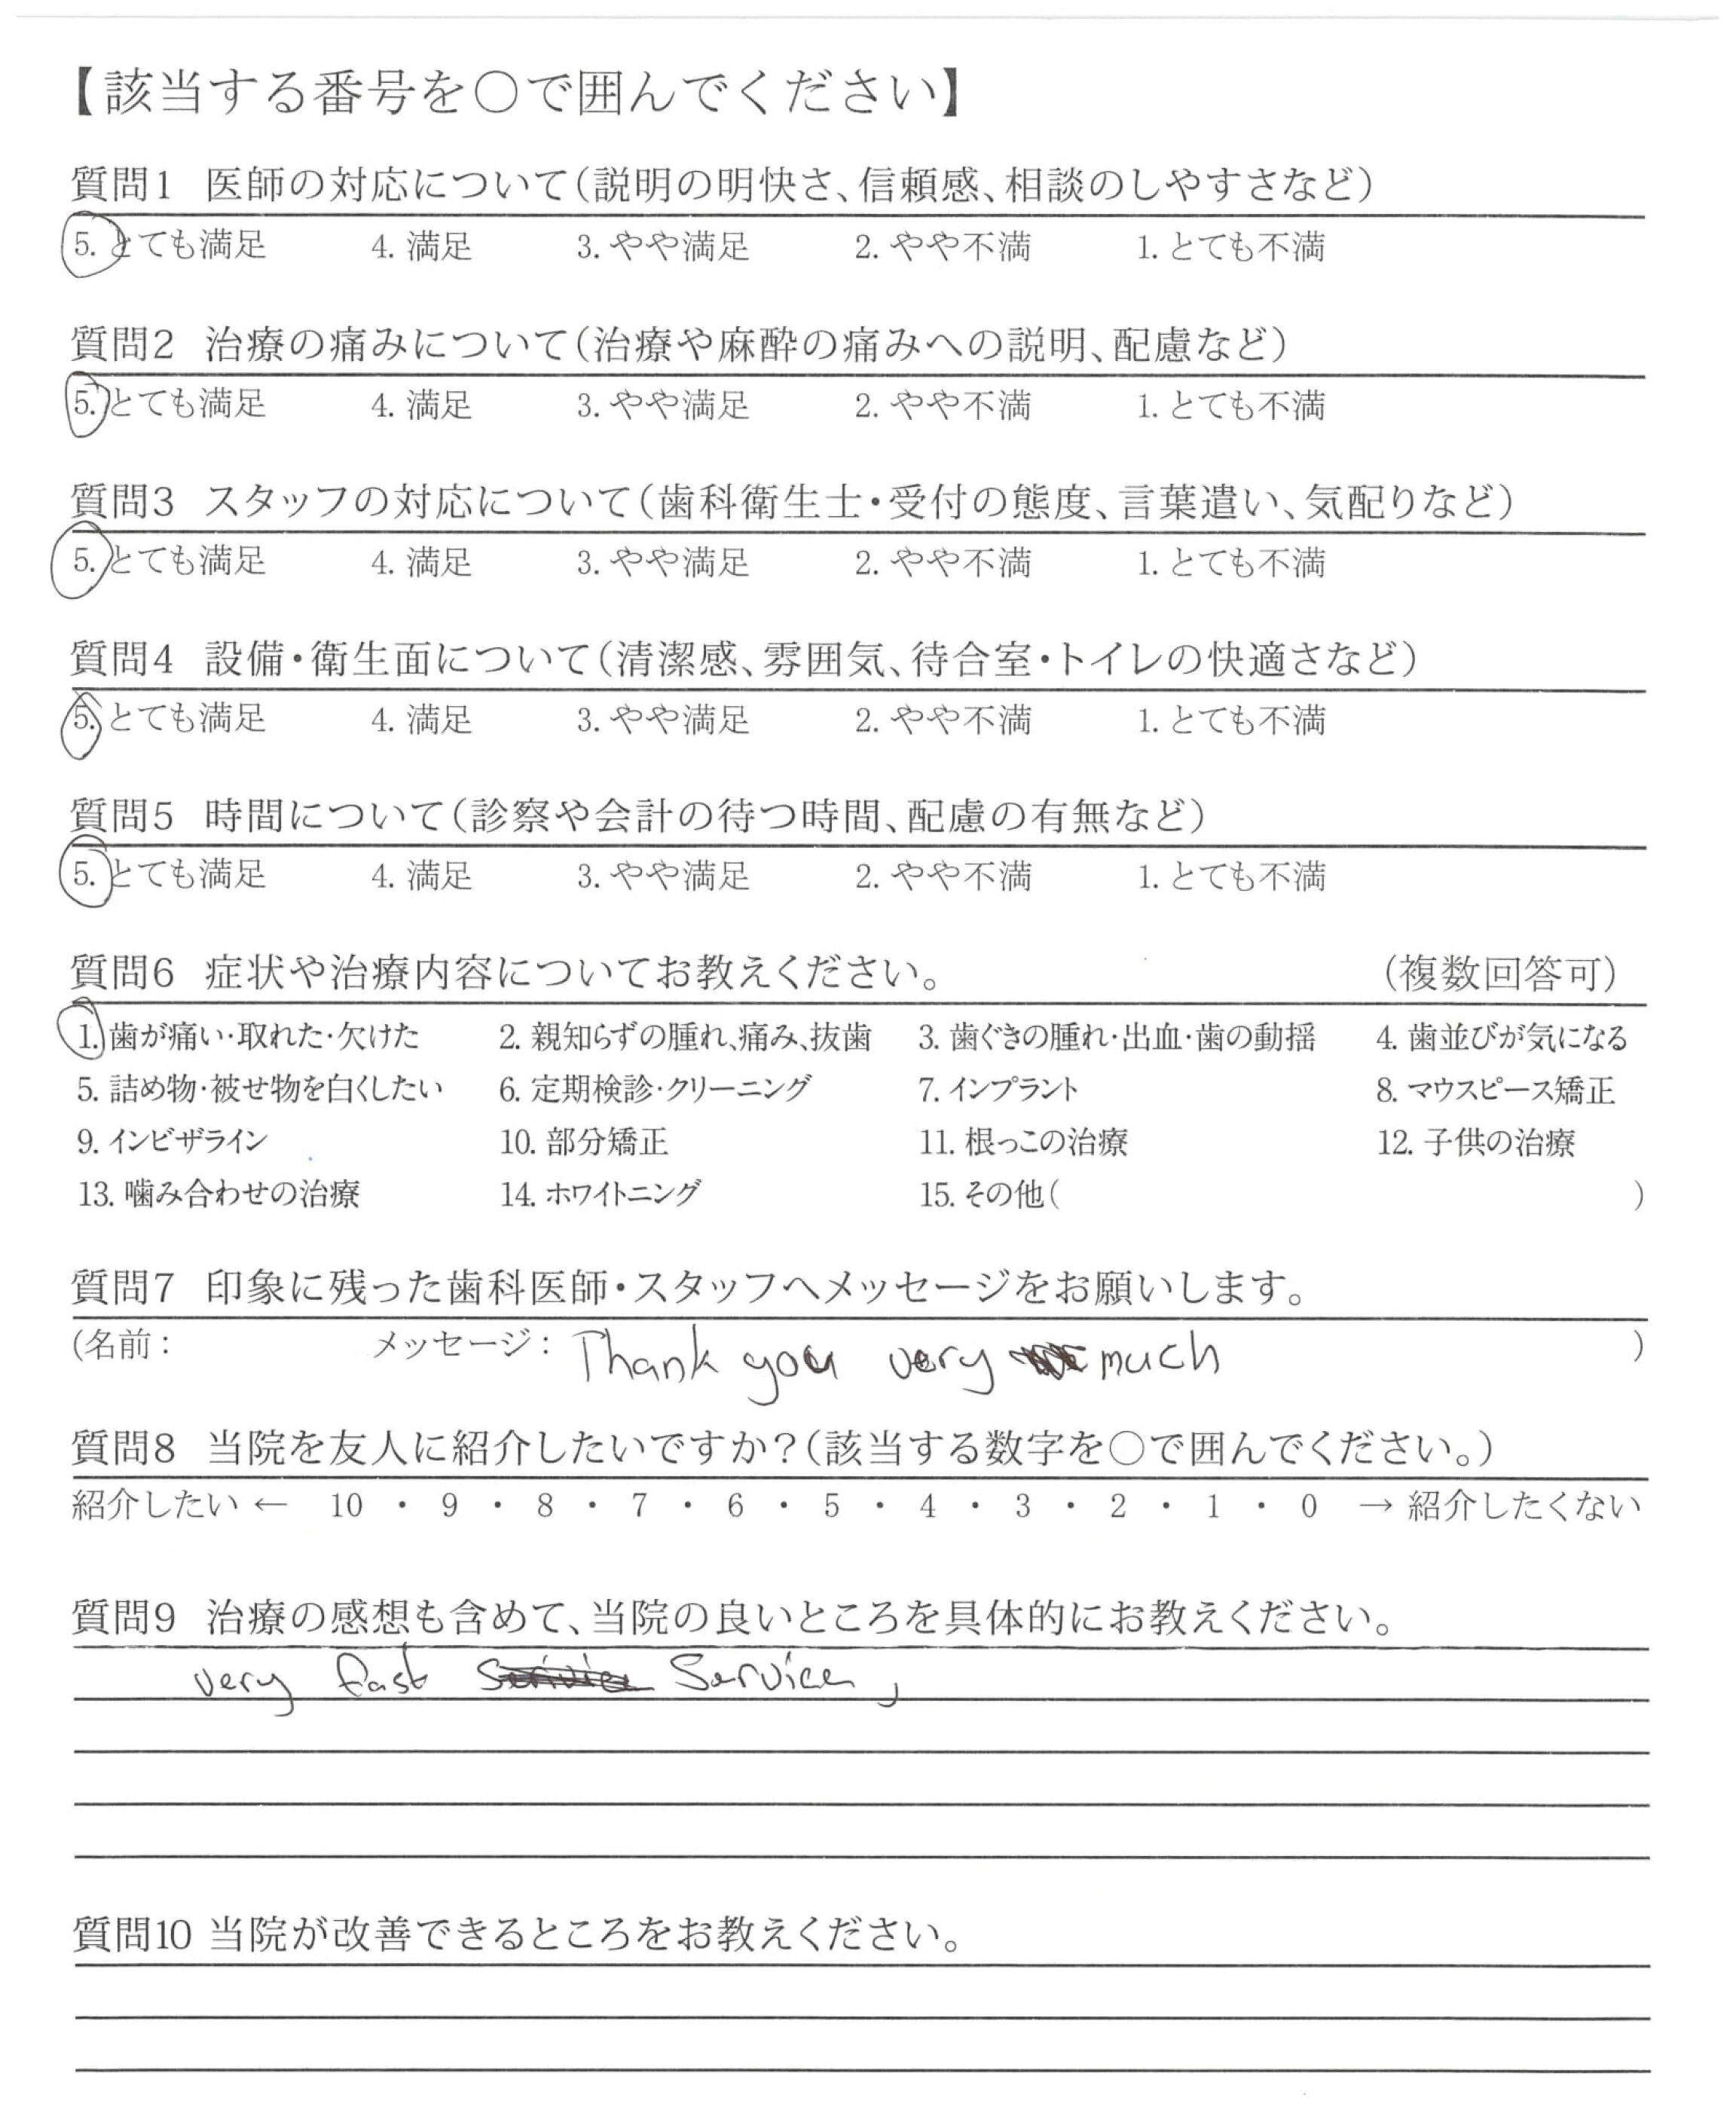 【該当する番号を○で囲んでください】
質問1 医師の対応について(説明の明快さ、信頼感、相談のしやすさなど)
5. とても満足 4. 満足 3. やや満足 2. やや不満 1. とても不満
質問2 治療の痛みについて(治療や麻酔の痛みへの説明、配慮など)
5. とても満足 4. 満足 3. やや満足 2. やや不満 1. とても不満
質問3 スタッフの対応について(歯科衛生士・受付の態度、言葉遣い、気配りなど)
5. とても満足 4. 満足 3. やや満足 2. やや不満 1. とても不満
質問4 設備・衛生面について(清潔感、雰囲気、待合室・トイレの快適さなど)
5. とても満足 4. 満足 3. やや満足 2. やや不満 1. とても不満
質問5 時間について(診察や会計の待つ時間、配慮の有無など)
5. とても満足 4. 満足 3. やや満足 2. やや不満 1. とても不満
質問6 症状や治療内容についてお教えください。 (複数回答可)
1. 歯が痛い・取れた・欠けた 2. 親知らずの腫れ、痛み、抜歯 3. 歯ぐきの腫れ・出血・歯の動揺 4. 歯並びが気になる
5. 詰め物・被せ物を白くしたい 6. 定期検診・クリーニング 7. インプラント 8. マウスピース矯正
9. インビザライン 10. 部分矯正 11. 根っこの治療 12. 子供の治療
13. 噛み合わせの治療 14. ホワイトニング 15. その他( )
質問7 印象に残った歯科医師・スタッフへメッセージをお願いします。
(名前: メッセージ: Thank you very much )
質問8 当院を友人に紹介したいですか?(該当する数字を○で囲んでください。)
紹介したい ← 10 ・ 9 ・ 8 ・ 7 ・ 6 ・ 5 ・ 4 ・ 3 ・ 2 ・ 1 ・ 0 → 紹介したくない
質問9 治療の感想も含めて、当院の良いところを具体的にお教えください。
very fast Service,
質問10 当院が改善できるところをお教えください。